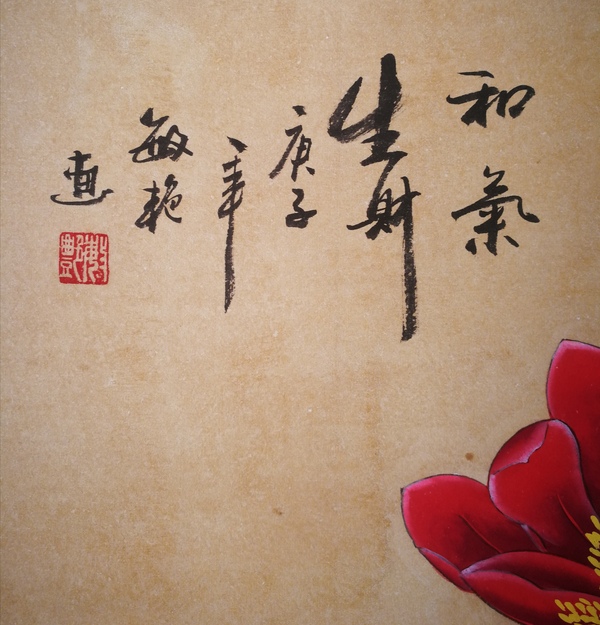 和氣
生財
庚子
年
敏艳
畫